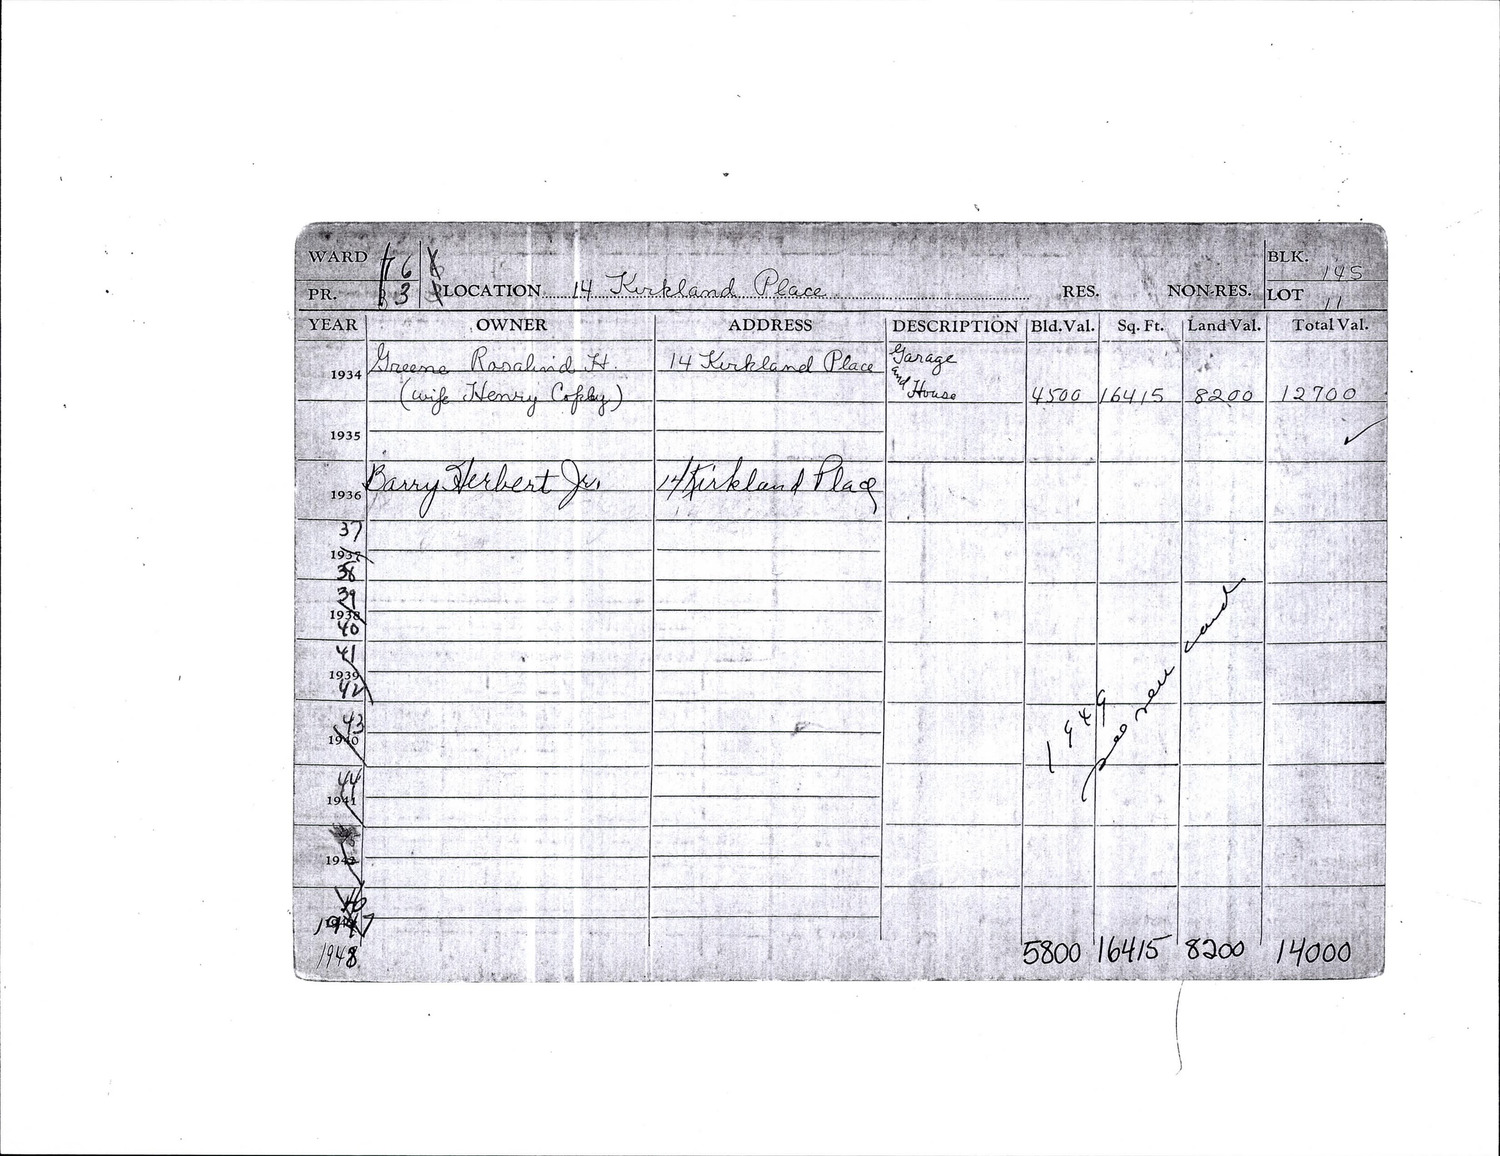 WARD 6 BLK. 145
PR. 3 LOCATION 14 Kirkland Place RES. NON-RES. LOT 11
YEAR OWNER ADDRESS DESCRIPTION Bld.Val. Sq. Ft. Land Val. Total Val.
1934 Greene Rosalind H. 14 Kirkland Place Garage
(wife Henry Copley) and House 4500 16415 8200 12700
1935
1936 Barry Herbert Jr. 14 Kirkland Place
37
1937
38
39
1938
40
41
1939
42
43
1940
44
1941
1942
46
1948 5800 16415 8200 14000
1949
see new card